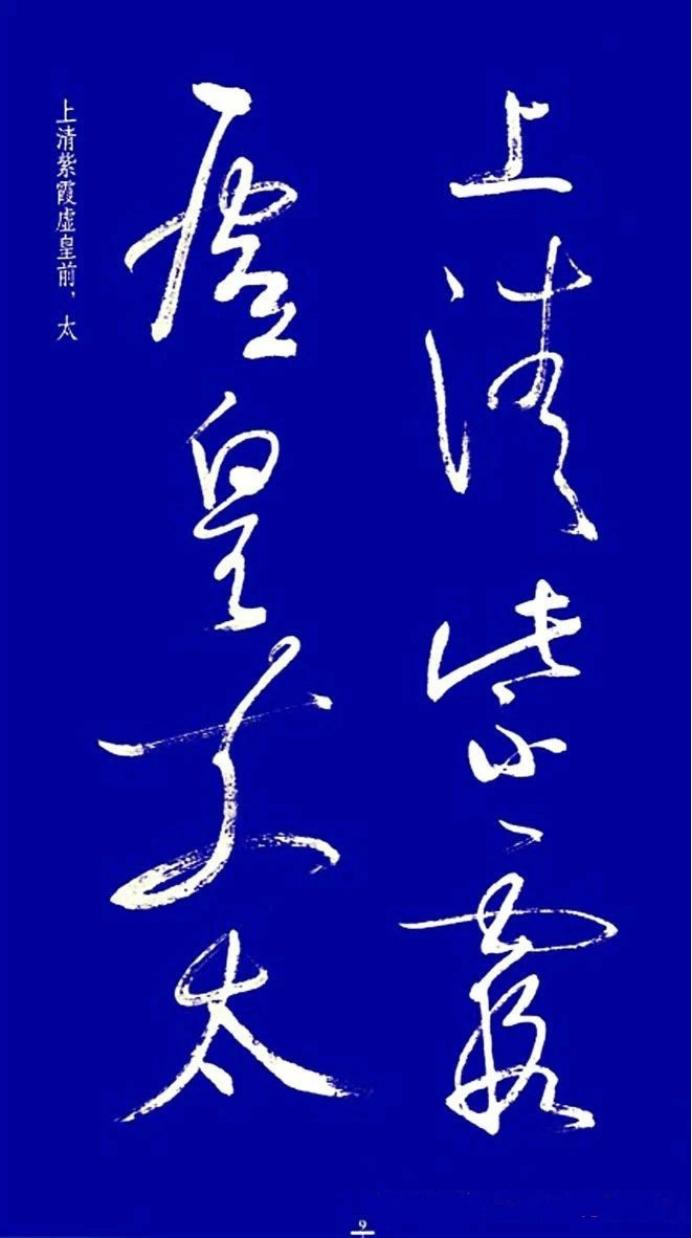 上清紫霞
虚皇前太
上清紫霞虚皇前，太
9